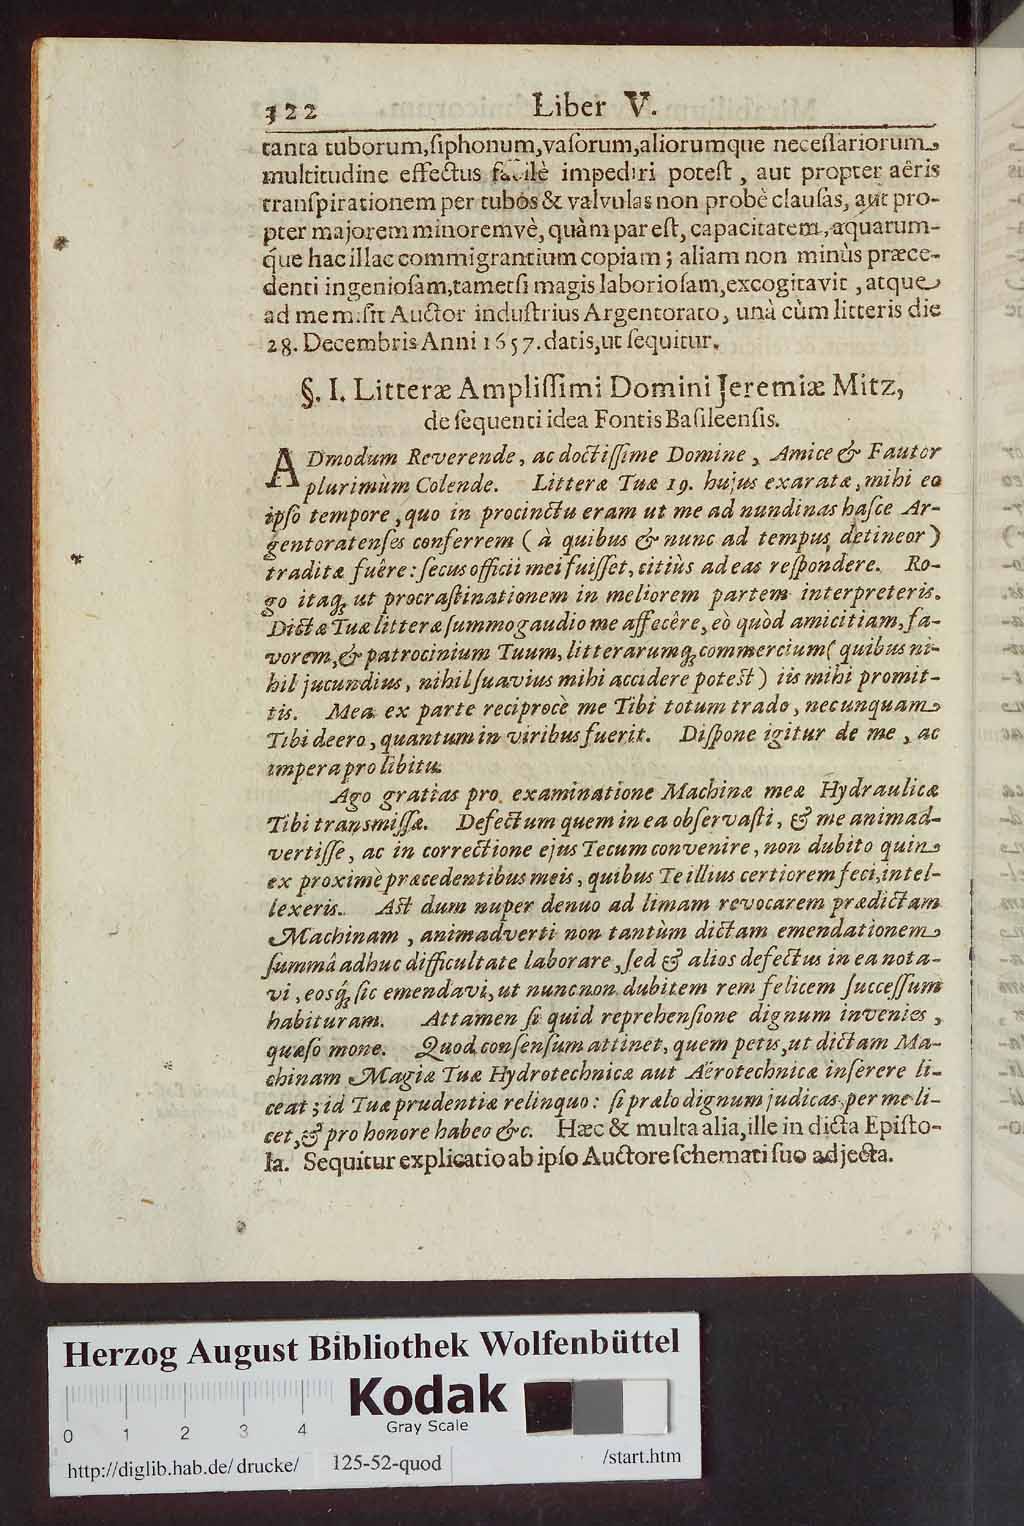 322 Liber V.
tanta tuborum,ſiphonum,vaſorum,aliorumque neceſſariorum
multitudine effectus facilè impediri poteſt , aut propter aêris
tranſpirationem per tubos & valvulas non probè clauſas, aut pro-
pter majorem minoremvè, quàm par eſt, capacitatem, aquarum-
que hac illac commigrantium copiam ; aliam non minùs præce-
denti ingenioſam,tametſi magis laborioſam,excogitavit , atque
ad me miſit Auctor induſtrius Argentorato, unà cùm litteris die
28. Decembris Anni 1657. datis,ut ſequitur.
§. I. Litteræ Ampliſſimi Domini Jeremiæ Mitz,
de ſequenti idea Fontis Baſileenſis.
ADmodum Reverende, ac doctiſſime Domine , Amice & Fautor
plurimùm Colende. Litteræ Tuæ 19. hujus exaratæ, mihi eo
ipſo tempore , quo in procinctu eram ut me ad nundinas haſce Ar-
gentoratenſes conferrem ( à quibus & nunc ad tempus detineor )
traditæ fuêre: ſecus officii mei fuiſſet, citiùs ad eas reſpondere. Ro-
go itaq; ut procraſtinationem in meliorem partem interpreteris.
Dictæ Tuæ litteræ ſummo gaudio me affecêre, eò quòd amicitiam, fa-
vorem, & patrocinium Tuum, litterarumq; commercium ( quibus ni-
hil jucundius, nihil ſuavius mihi accidere poteſt ) iis mihi promit-
tis. Mea ex parte reciprocè me Tibi totum trado, nec unquam
Tibi deero, quantum in viribus fuerit. Diſpone igitur de me , ac
impera pro libitu.
Ago gratias pro examinatione Machinæ meæ Hydraulicæ
Tibi transmiſſæ. Defectum quem in ea obſervaſti, & me animad-
vertiſſe, ac in correctione ejus Tecum convenire, non dubito quin
ex proximè præcedentibus meis, quibus Te illius certiorem feci, intel-
lexeris. Aſt dum nuper denuo ad limam revocarem prædictam
Machinam , animadverti non tantùm dictam emendationem
ſummâ adhuc difficultate laborare, ſed & alios defectus in ea nota-
vi , eosq; ſic emendavi, ut nunc non dubitem rem felicem ſucceſſum
habituram. Attamen ſi quid reprehenſione dignum invenies ,
quæſo mone. Quod conſenſum attinet, quem petis, ut dictam Ma-
chinam Magiæ Tuæ Hydrotechnicæ aut Aërotechnicæ inſerere li-
ceat ; id Tuæ prudentiæ relinquo: ſi prælo dignum judicas, per me li-
cet, & pro honore habeo &c. Hæc & multa alia, ille in dicta Epiſto-
la. Sequitur explicatio ab ipſo Auctore ſchemati ſuo adjecta.
Herzog August Bibliothek Wolfenbüttel
Kodak
Gray Scale
0 1 2 3 4
http://diglib.hab.de/drucke/ 125-52-quod /start.htm